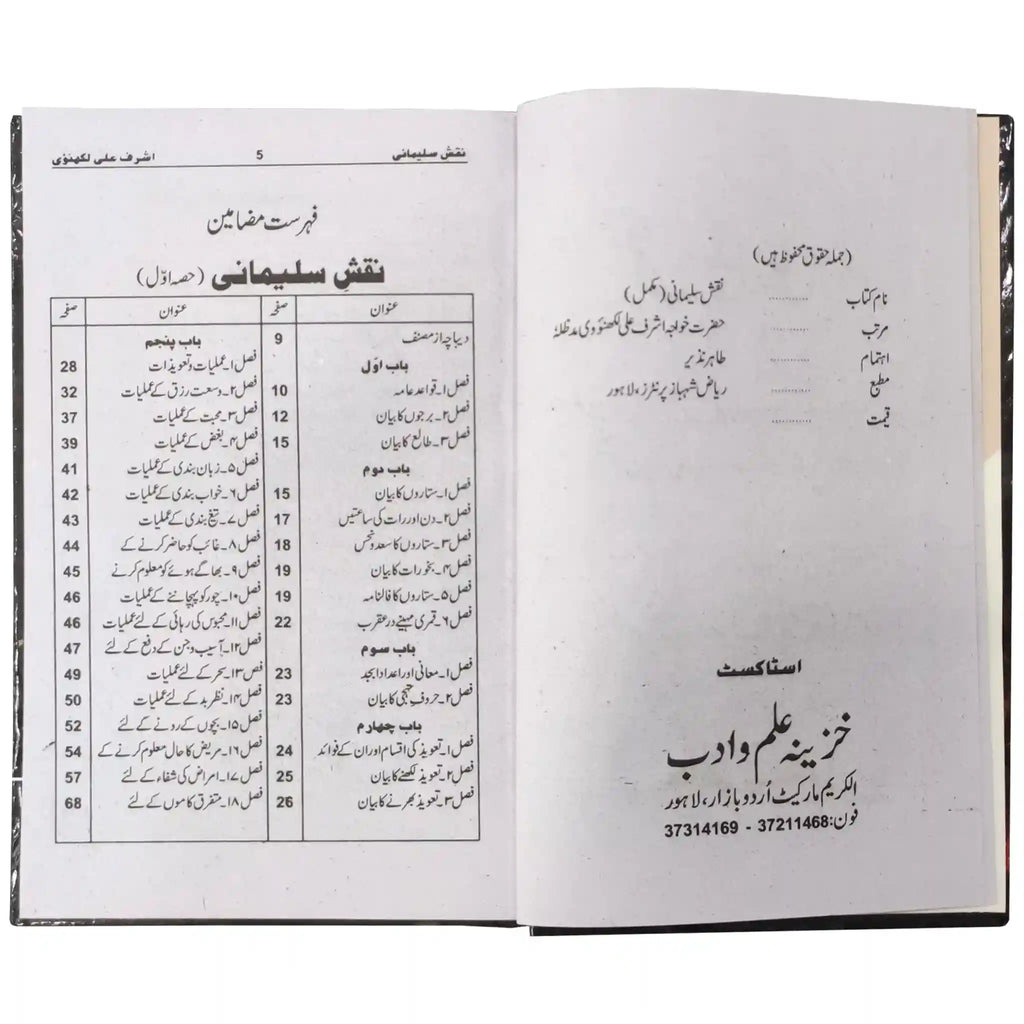 (جملہ حقوق محفوظ ہیں)
نام کتاب ............ نقش سلیمانی (مکمل)
مرتب ............ حضرت خواجہ اشرف علی لکھنؤوی مدظلہ
اہتمام ............ طاہر نذیر
مطبع ............ ریاض شہباز پرنٹرز، لاہور
قیمت ............
اسٹاکسٹ
خزینہ علم و ادب
الکریم مارکیٹ اُردو بازار، لاہور
فون: 37211468 - 37314169
نقش سلیمانی 5 اشرف علی لکھنؤی
فہرست مضامین
نقشِ سلیمانی (حصہ اوّل)
عنوان صفحہ
دیباچہ از مصنف 9
باب اوّل
فصل ۱۔ قواعد عامہ 10
فصل ۲۔ برجوں کا بیان 12
فصل ۳۔ طالع کا بیان 15
باب دوم
فصل ۱۔ ستاروں کا بیان 15
فصل ۲۔ دن اور رات کی ساعتیں 17
فصل ۳۔ ستاروں کا سعد و نحس 18
فصل ۴۔ بخورات کا بیان 19
فصل ۵۔ ستاروں کا فالنامہ 19
فصل ۶۔ قمری مہینے در عقرب 22
باب سوم
فصل ۱۔ معانی اور اعداد ابجد 23
فصل ۲۔ حروف تہجی کا بیان 23
باب چہارم
فصل ۱۔ تعویذ کی اقسام اور ان کے فوائد 24
فصل ۲۔ تعویذ لکھنے کا بیان 25
فصل ۳۔ تعویذ بھرنے کا بیان 26
عنوان صفحہ
باب پنجم
فصل ۱۔ عملیات و تعویذات 28
فصل ۲۔ وسعت رزق کے عملیات 32
فصل ۳۔ محبت کے عملیات 37
فصل ۴۔ بغض کے عملیات 39
فصل ۵۔ زبان بندی کے عملیات 41
فصل ۶۔ خواب بندی کے عملیات 42
فصل ۷۔ تیغ بندی کے عملیات 43
فصل ۸۔ غائب کو حاضر کرنے کے 44
فصل ۹۔ بھاگے ہوئے کو معلوم کرنے 45
فصل ۱۰۔ چور کو پہچاننے کے عملیات 46
فصل ۱۱۔ محبوس کی رہائی کے عملیات 46
فصل ۱۲۔ آسیب و جن کے دفع کے لئے 47
فصل ۱۳۔ سحر کے لئے عملیات 49
فصل ۱۴۔ نظر بد کے لئے عملیات 50
فصل ۱۵۔ بچوں کے رونے کے لئے 52
فصل ۱۶۔ مریض کا حال معلوم کرنے کے 54
فصل ۱۷۔ امراض کی شفاء کے لئے 57
فصل ۱۸۔ متفرق کاموں کے لئے 68